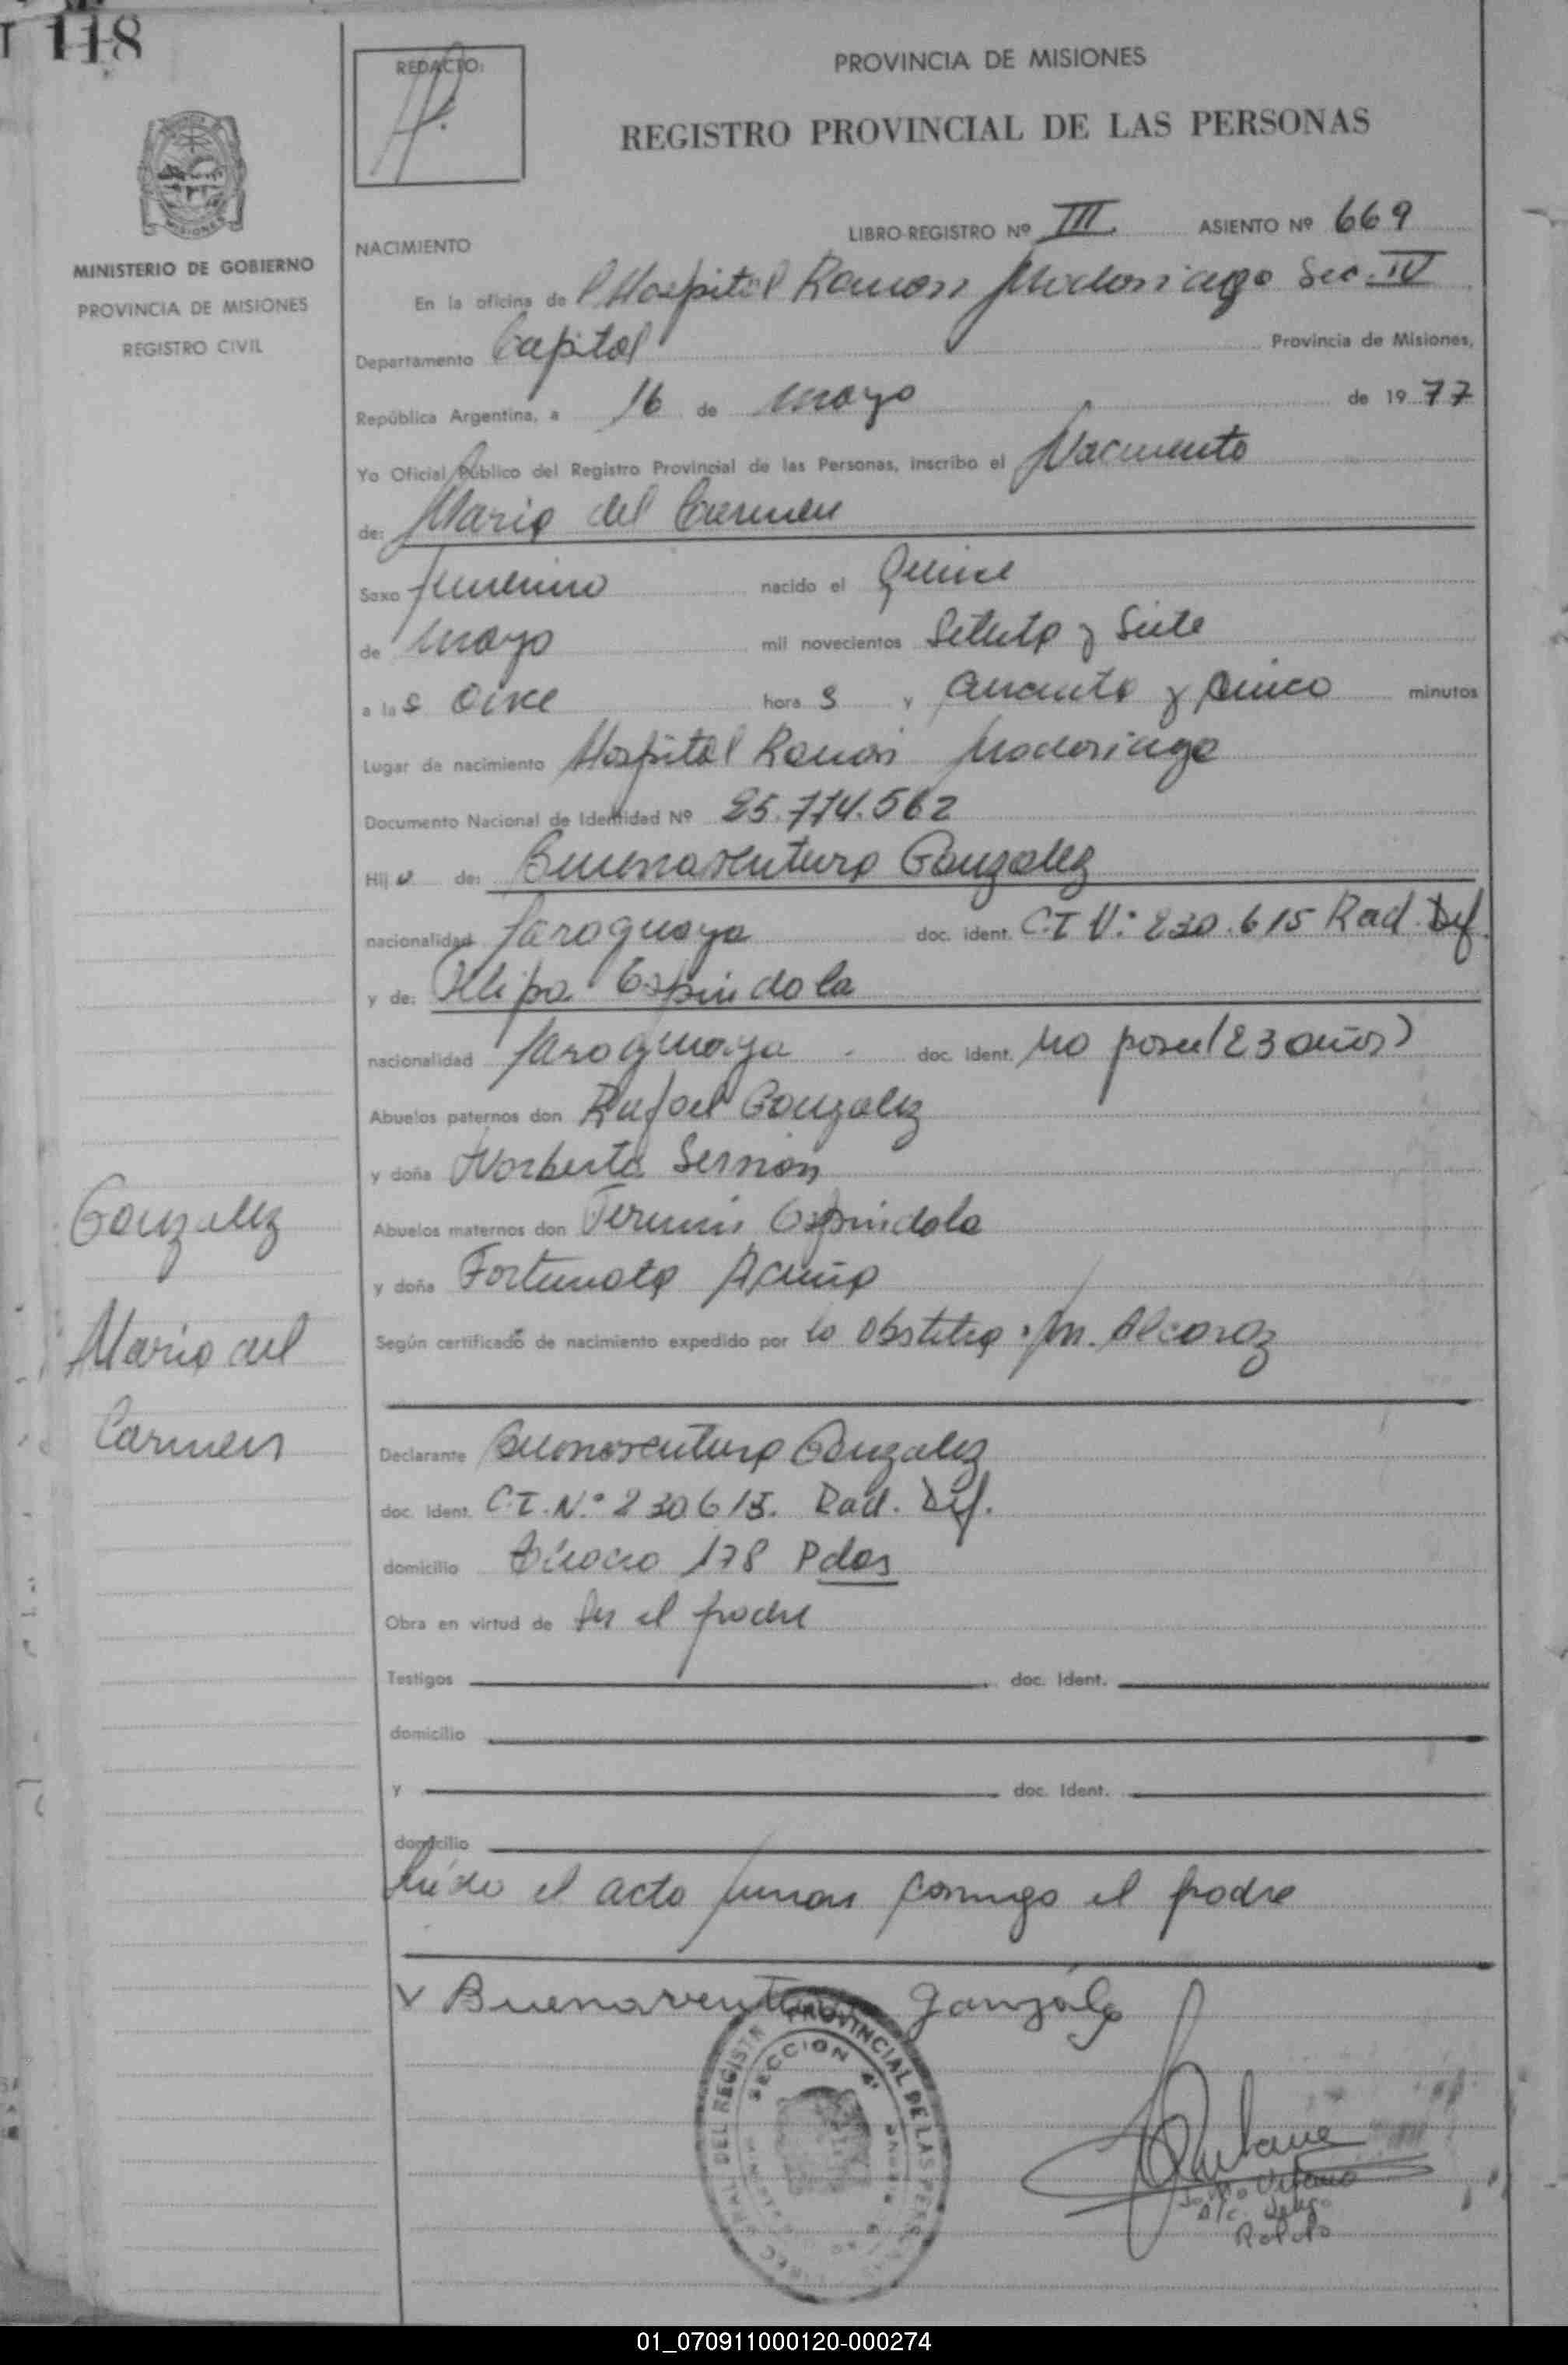 118
REDACTO:
PROVINCIA DE MISIONES
REGISTRO PROVINCIAL DE LAS PERSONAS
MISIONES
MINISTERIO DE GOBIERNO
PROVINCIA DE MISIONES
REGISTRO CIVIL
NACIMIENTO
LIBRO-REGISTRO Nº III ASIENTO Nº 669
En la oficina de l Hospital Ramon Madariaga Sec. IV
Departamento Capital Provincia de Misiones,
República Argentina, a 16 de mayo de 1977
Yo Oficial Público del Registro Provincial de las Personas, inscribo el Nacimiento
de: Maria del Carmen
Sexo femenino nacido el Quince
de mayo mil novecientos Setenta y Siete
a las once horas y cuarenta y cinco minutos
Lugar de nacimiento Hospital Ramon Madariaga
Documento Nacional de Identidad Nº 25.774.562
Hija de: Buenaventura Gonzalez
nacionalidad Paraguaya doc. ident. C.I Nº 230.615 Rad. Def.
y de: Espindola
nacionalidad Paraguaya doc. ident. no posee (23 años)
Abuelos paternos don Rafael Gonzalez
y doña Norberta
Abuelos maternos don Fermin Espindola
y doña Fortunata Acuña
Según certificado de nacimiento expedido por la obstetra M. Alcaraz
Gonzalez
Maria del
Carmen
Declarante Buenaventura Gonzalez
doc. ident. C.I. Nº 230615. Rad. Def.
domicilio 178 Pdas
Obra en virtud de ser el padre
Testigos doc. ident.
domicilio
y doc. ident.
domicilio
Leído el acta firman conmigo el padre
Buenaventura Gonzalez
PROVINCIAL DE LAS PERS
DEL REGISTR
SECCION 4ª
01_070911000120-000274